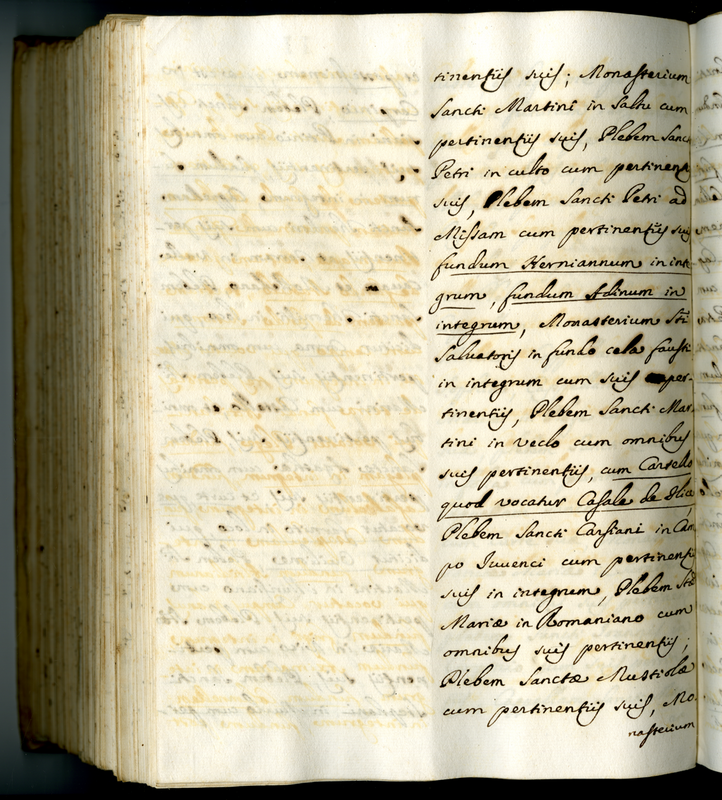 tinentijs suis; Monasterium
Sancti Martini in Saltu cum
pertinentijs suis, Plebem Sanc
Petri in culto cum pertinent
suis, Plebem Sancti Petri ad
Missam cum pertinentijs suis
fundum Herniannum in inte
grum, fundum Adinum in
integrum, Monasterium Sti
Salvatoris in fundo cela fausti
in integrum cum suis per-
tinentijs, Plebem Sancti Mar-
tini in Veclo cum omnibus
suis pertinentijs, cum Castello
quod vocatur Casale de Ilice,
Plebem Sancti Cassiani in Cam
po Iuvenci cum pertinentijs
suis in integrum, Plebem Stæ
Mariæ in Romaniano cum
omnibus suis pertinentijs;
Plebem Sanctæ Mustiolæ
cum pertinentijs suis, Mo-
nasterium